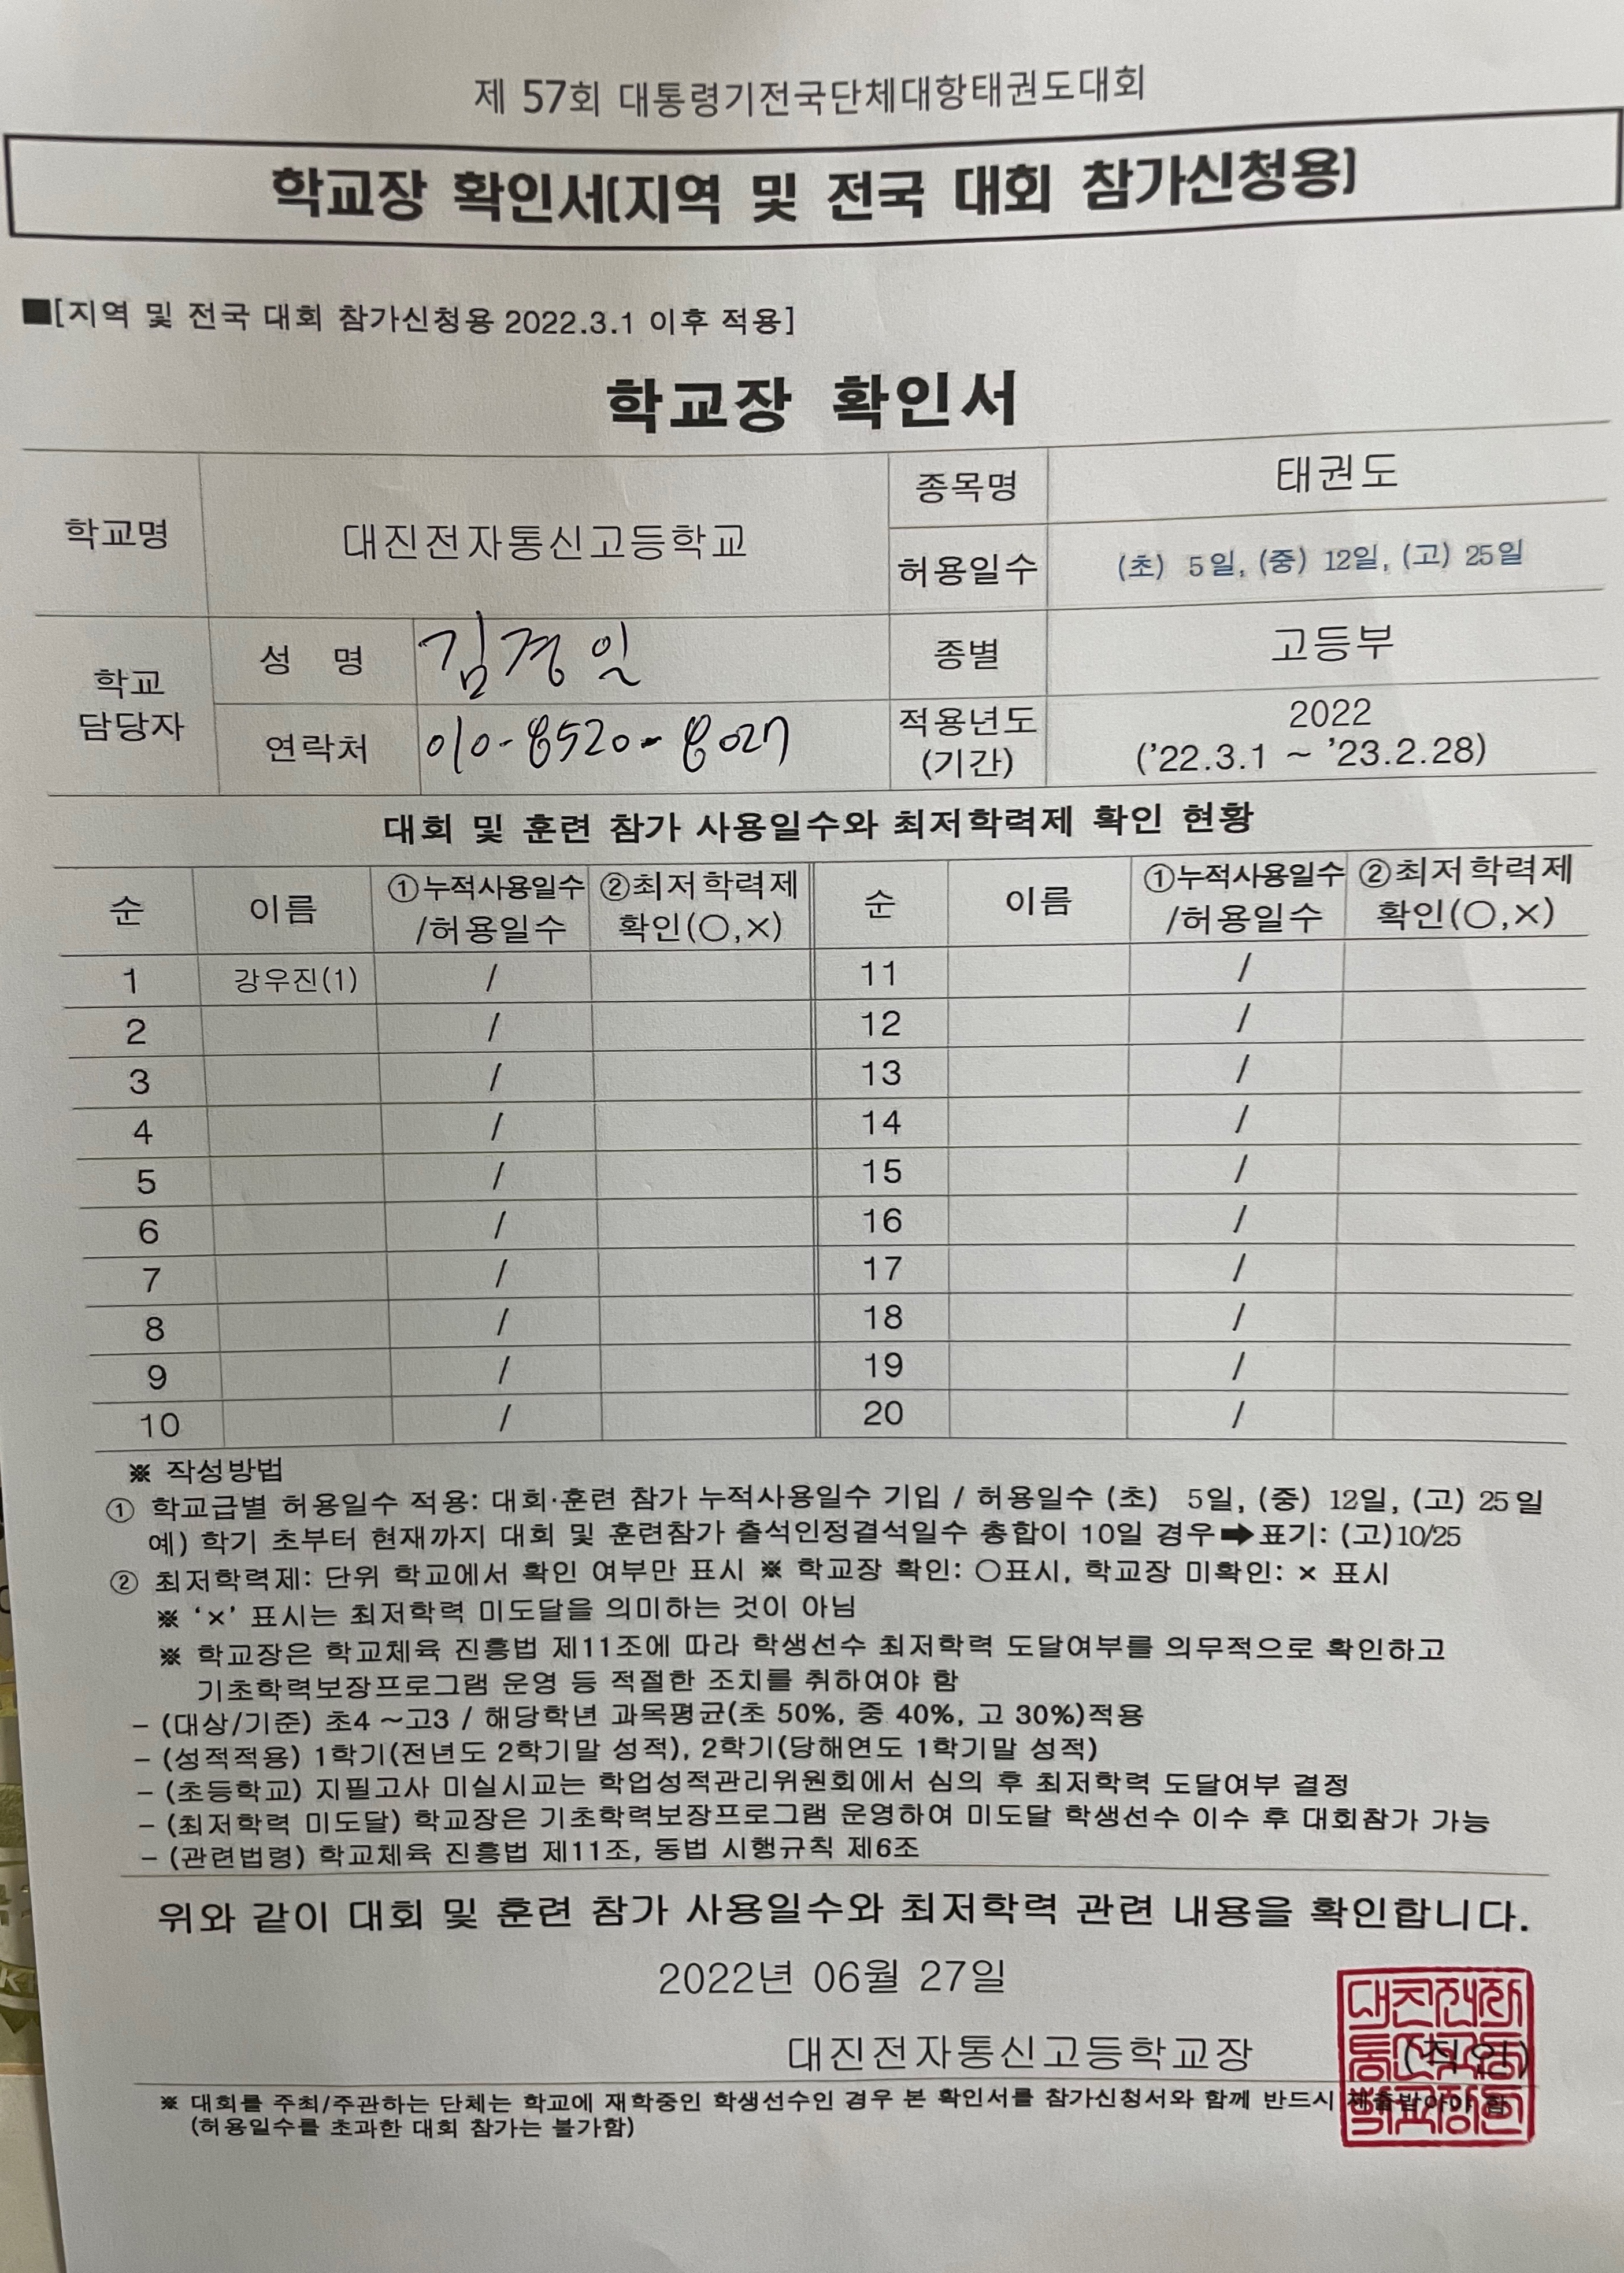 제 57회 대통령기전국단체대항태권도대회
학교장 확인서(지역 및 전국 대회 참가신청용)
■[지역 및 전국 대회 참가신청용 2022.3.1 이후 적용]
학교장 확인서
학교명 대진전자통신고등학교 종목명 태권도
허용일수 (초) 5일, (중) 12일, (고) 25일
학교 담당자 성 명 김경일 종별 고등부
연락처 010-8520-8027 적용년도 (기간) 2022 ('22.3.1 ~ '23.2.28)
대회 및 훈련 참가 사용일수와 최저학력제 확인 현황
순 이름 ①누적사용일수 /허용일수 ②최저학력제 확인(○,×) 순 이름 ①누적사용일수 /허용일수 ②최저학력제 확인(○,×)
1 강우진(1) / 11 /
2 / 12 /
3 / 13 /
4 / 14 /
5 / 15 /
6 / 16 /
7 / 17 /
8 / 18 /
9 / 19 /
10 / 20 /
※ 작성방법
① 학교급별 허용일수 적용: 대회·훈련 참가 누적사용일수 기입 / 허용일수 (초) 5일, (중) 12일, (고) 25일
예) 학기 초부터 현재까지 대회 및 훈련참가 출석인정결석일수 총합이 10일 경우➡표기: (고)10/25
② 최저학력제: 단위 학교에서 확인 여부만 표시 ※ 학교장 확인: ○표시, 학교장 미확인: × 표시
※ '×' 표시는 최저학력 미도달을 의미하는 것이 아님
※ 학교장은 학교체육 진흥법 제11조에 따라 학생선수 최저학력 도달여부를 의무적으로 확인하고
기초학력보장프로그램 운영 등 적절한 조치를 취하여야 함
- (대상/기준) 초4 ~고3 / 해당학년 과목평균(초 50%, 중 40%, 고 30%)적용
- (성적적용) 1학기(전년도 2학기말 성적), 2학기(당해연도 1학기말 성적)
- (초등학교) 지필고사 미실시교는 학업성적관리위원회에서 심의 후 최저학력 도달여부 결정
- (최저학력 미도달) 학교장은 기초학력보장프로그램 운영하여 미도달 학생선수 이수 후 대회참가 가능
- (관련법령) 학교체육 진흥법 제11조, 동법 시행규칙 제6조
위와 같이 대회 및 훈련 참가 사용일수와 최저학력 관련 내용을 확인합니다.
2022년 06월 27일
대진전자통신고등학교장 (직인)
※ 대회를 주최/주관하는 단체는 학교에 재학중인 학생선수인 경우 본 확인서를 참가신청서와 함께 반드시 제출받아야 함
(허용일수를 초과한 대회 참가는 불가함)